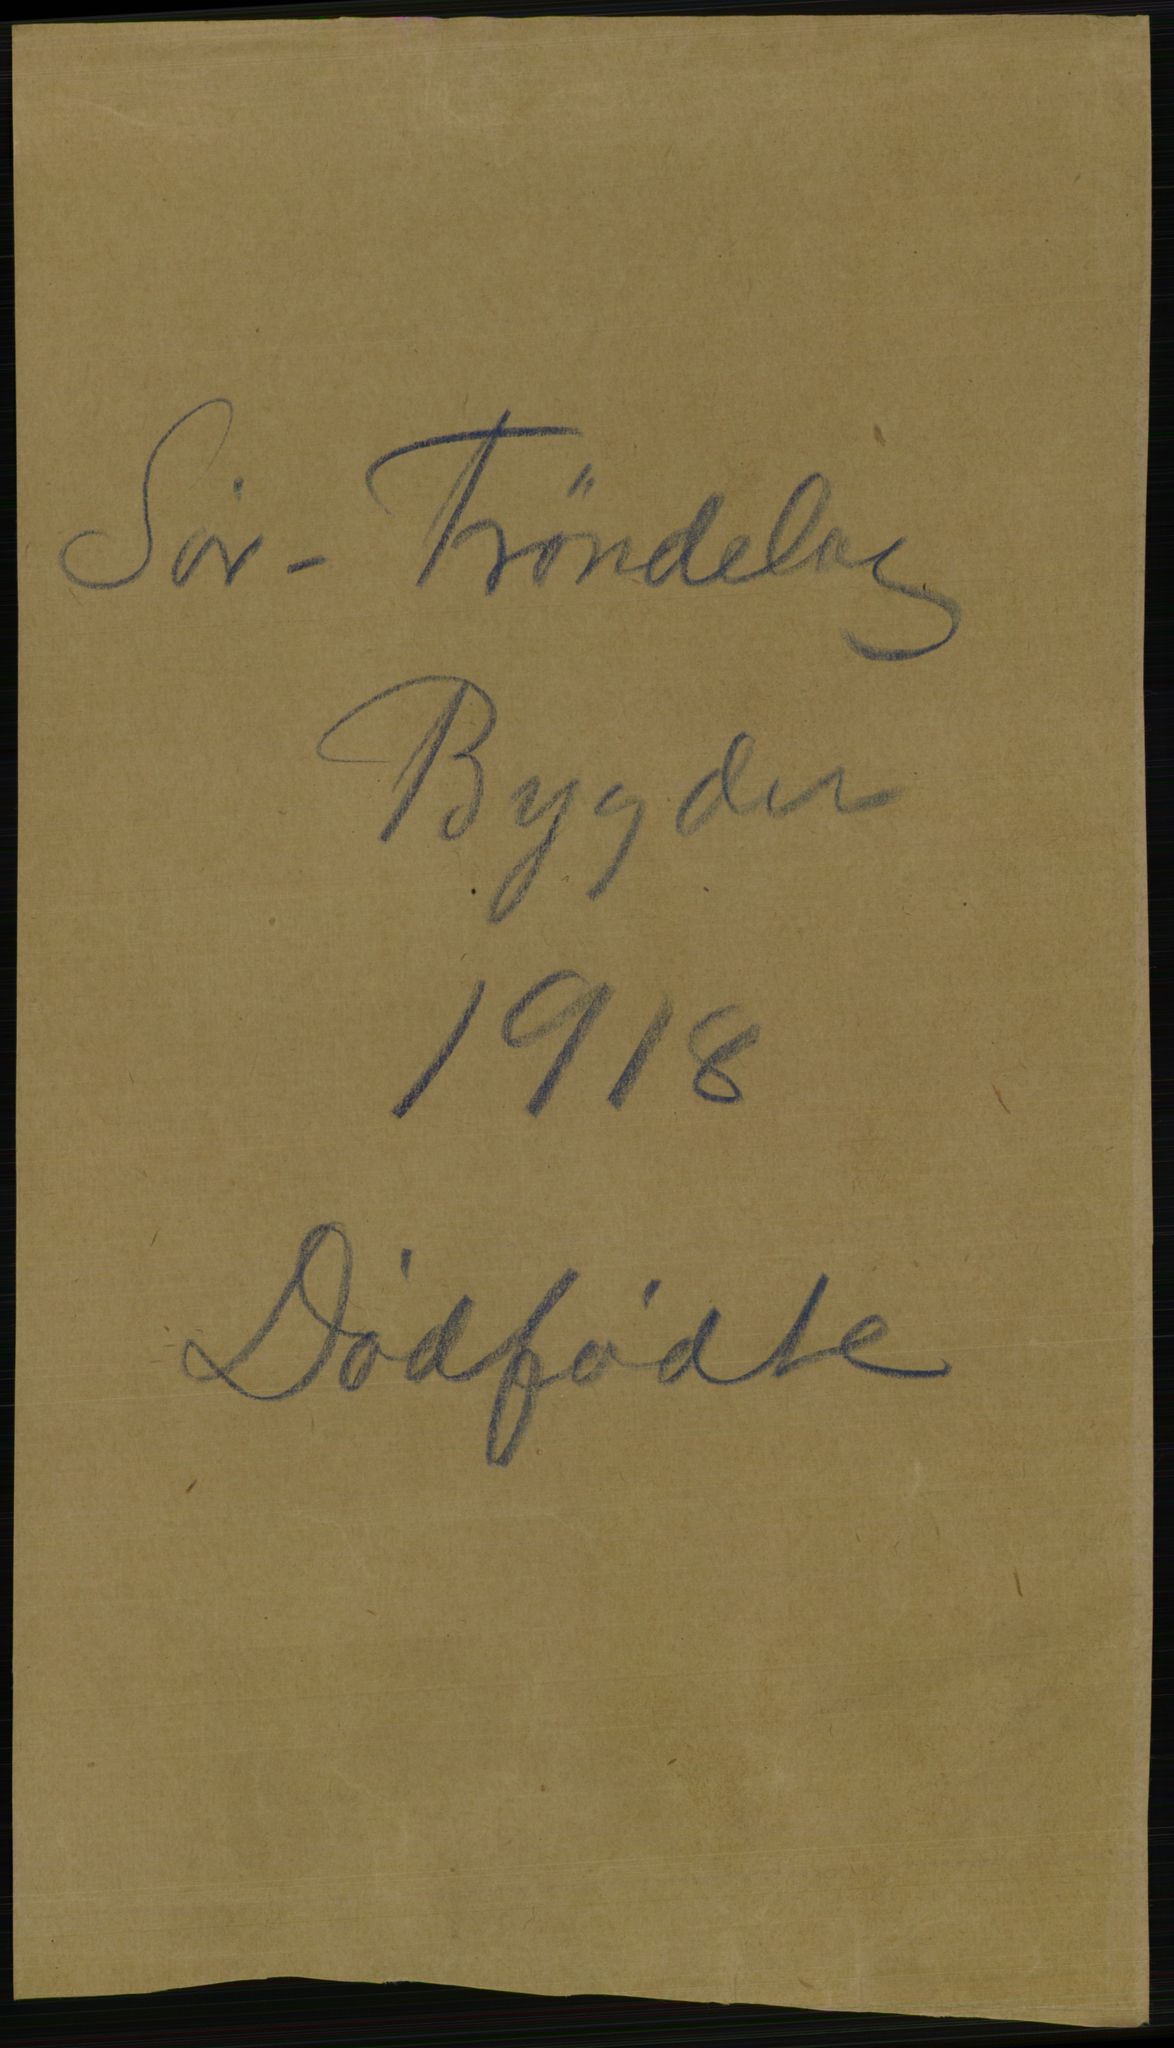 Sör-Tröndelag
Bygder
1918
Dödfödte